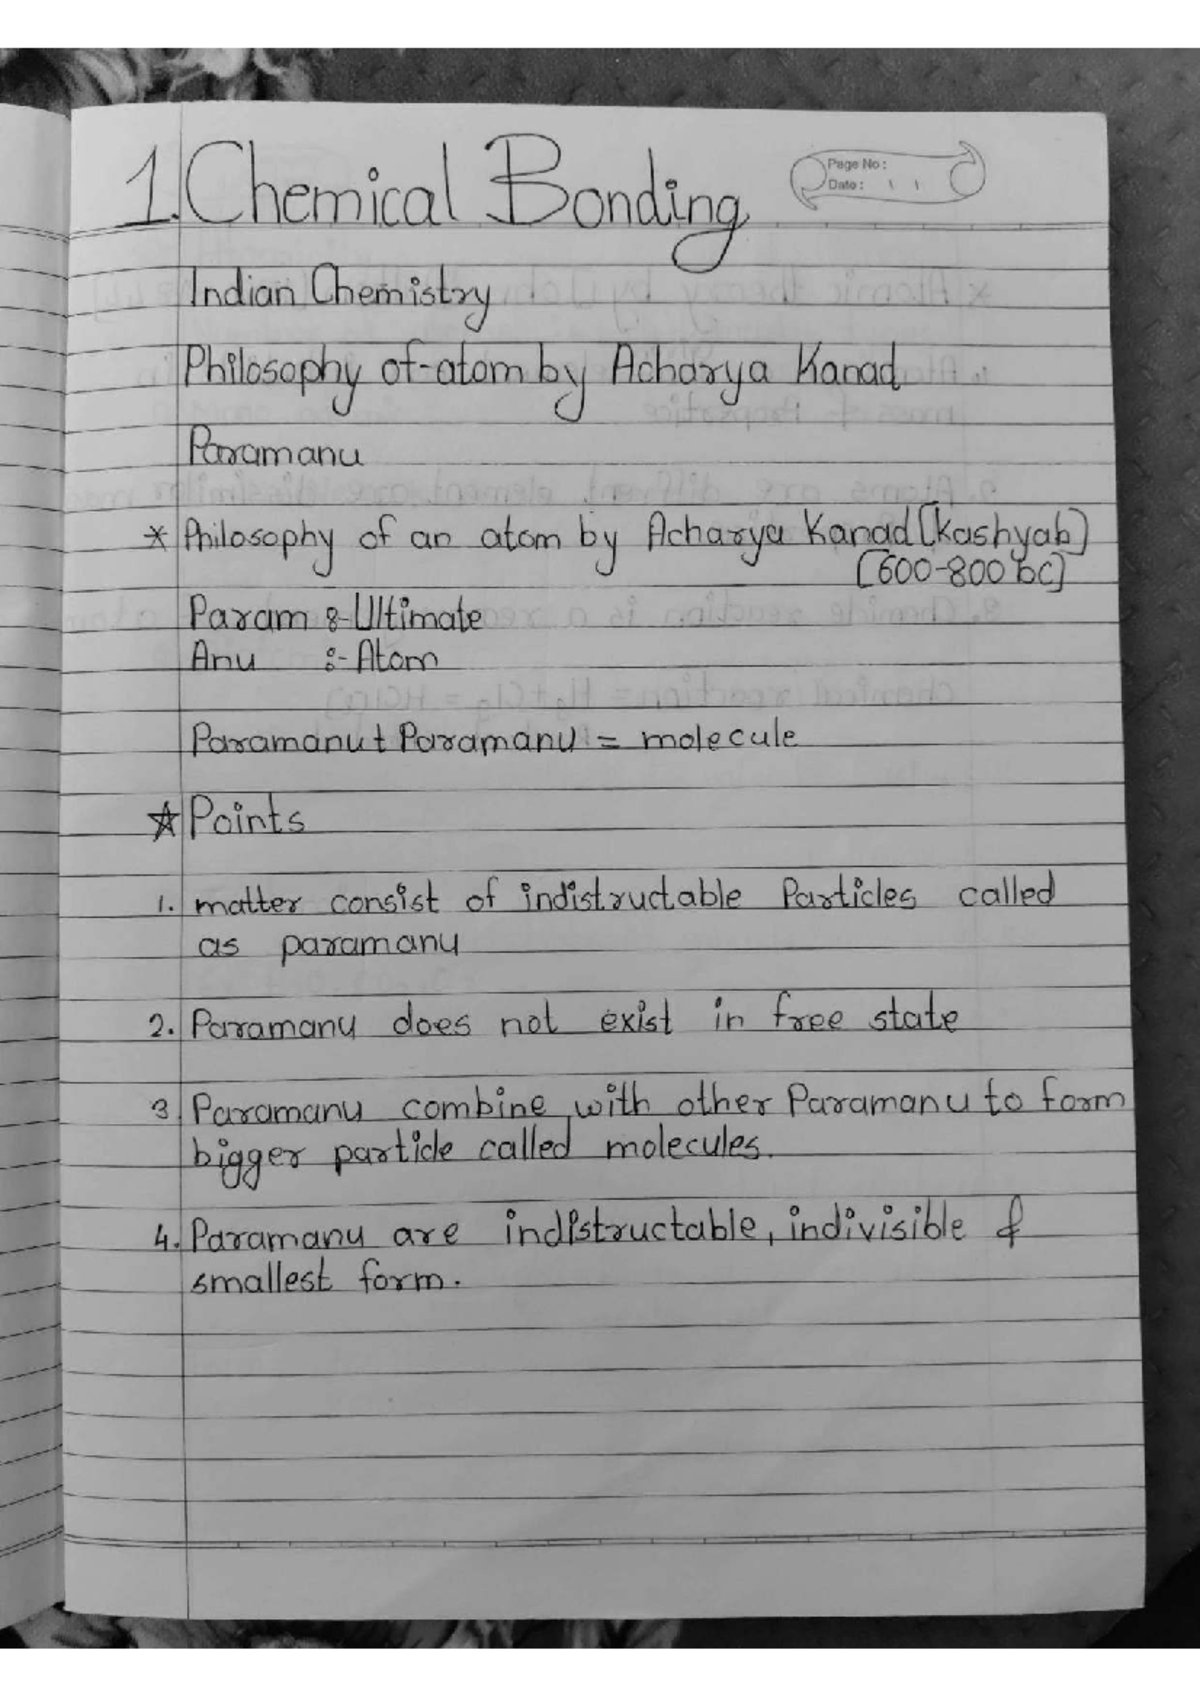 1. Chemical Bonding
Page No:
Date: \ \
Indian Chemistry
Philosophy of-atom by Acharya Kanad
Paramanu
* Philosophy of an atom by Acharya Kanad [Kashyab]
[600-800 bc]
Param :-Ultimate
Anu :- Atom
Paramanu + Paramanu = molecule
☆ Points
1. matter consist of indistructable Particles called
as paramanu
2. Paramanu does not exist in free state
3. Paramanu combine with other Paramanu to form
bigger particle called molecules.
4. Paramanu are indistructable, indivisible &
smallest form.